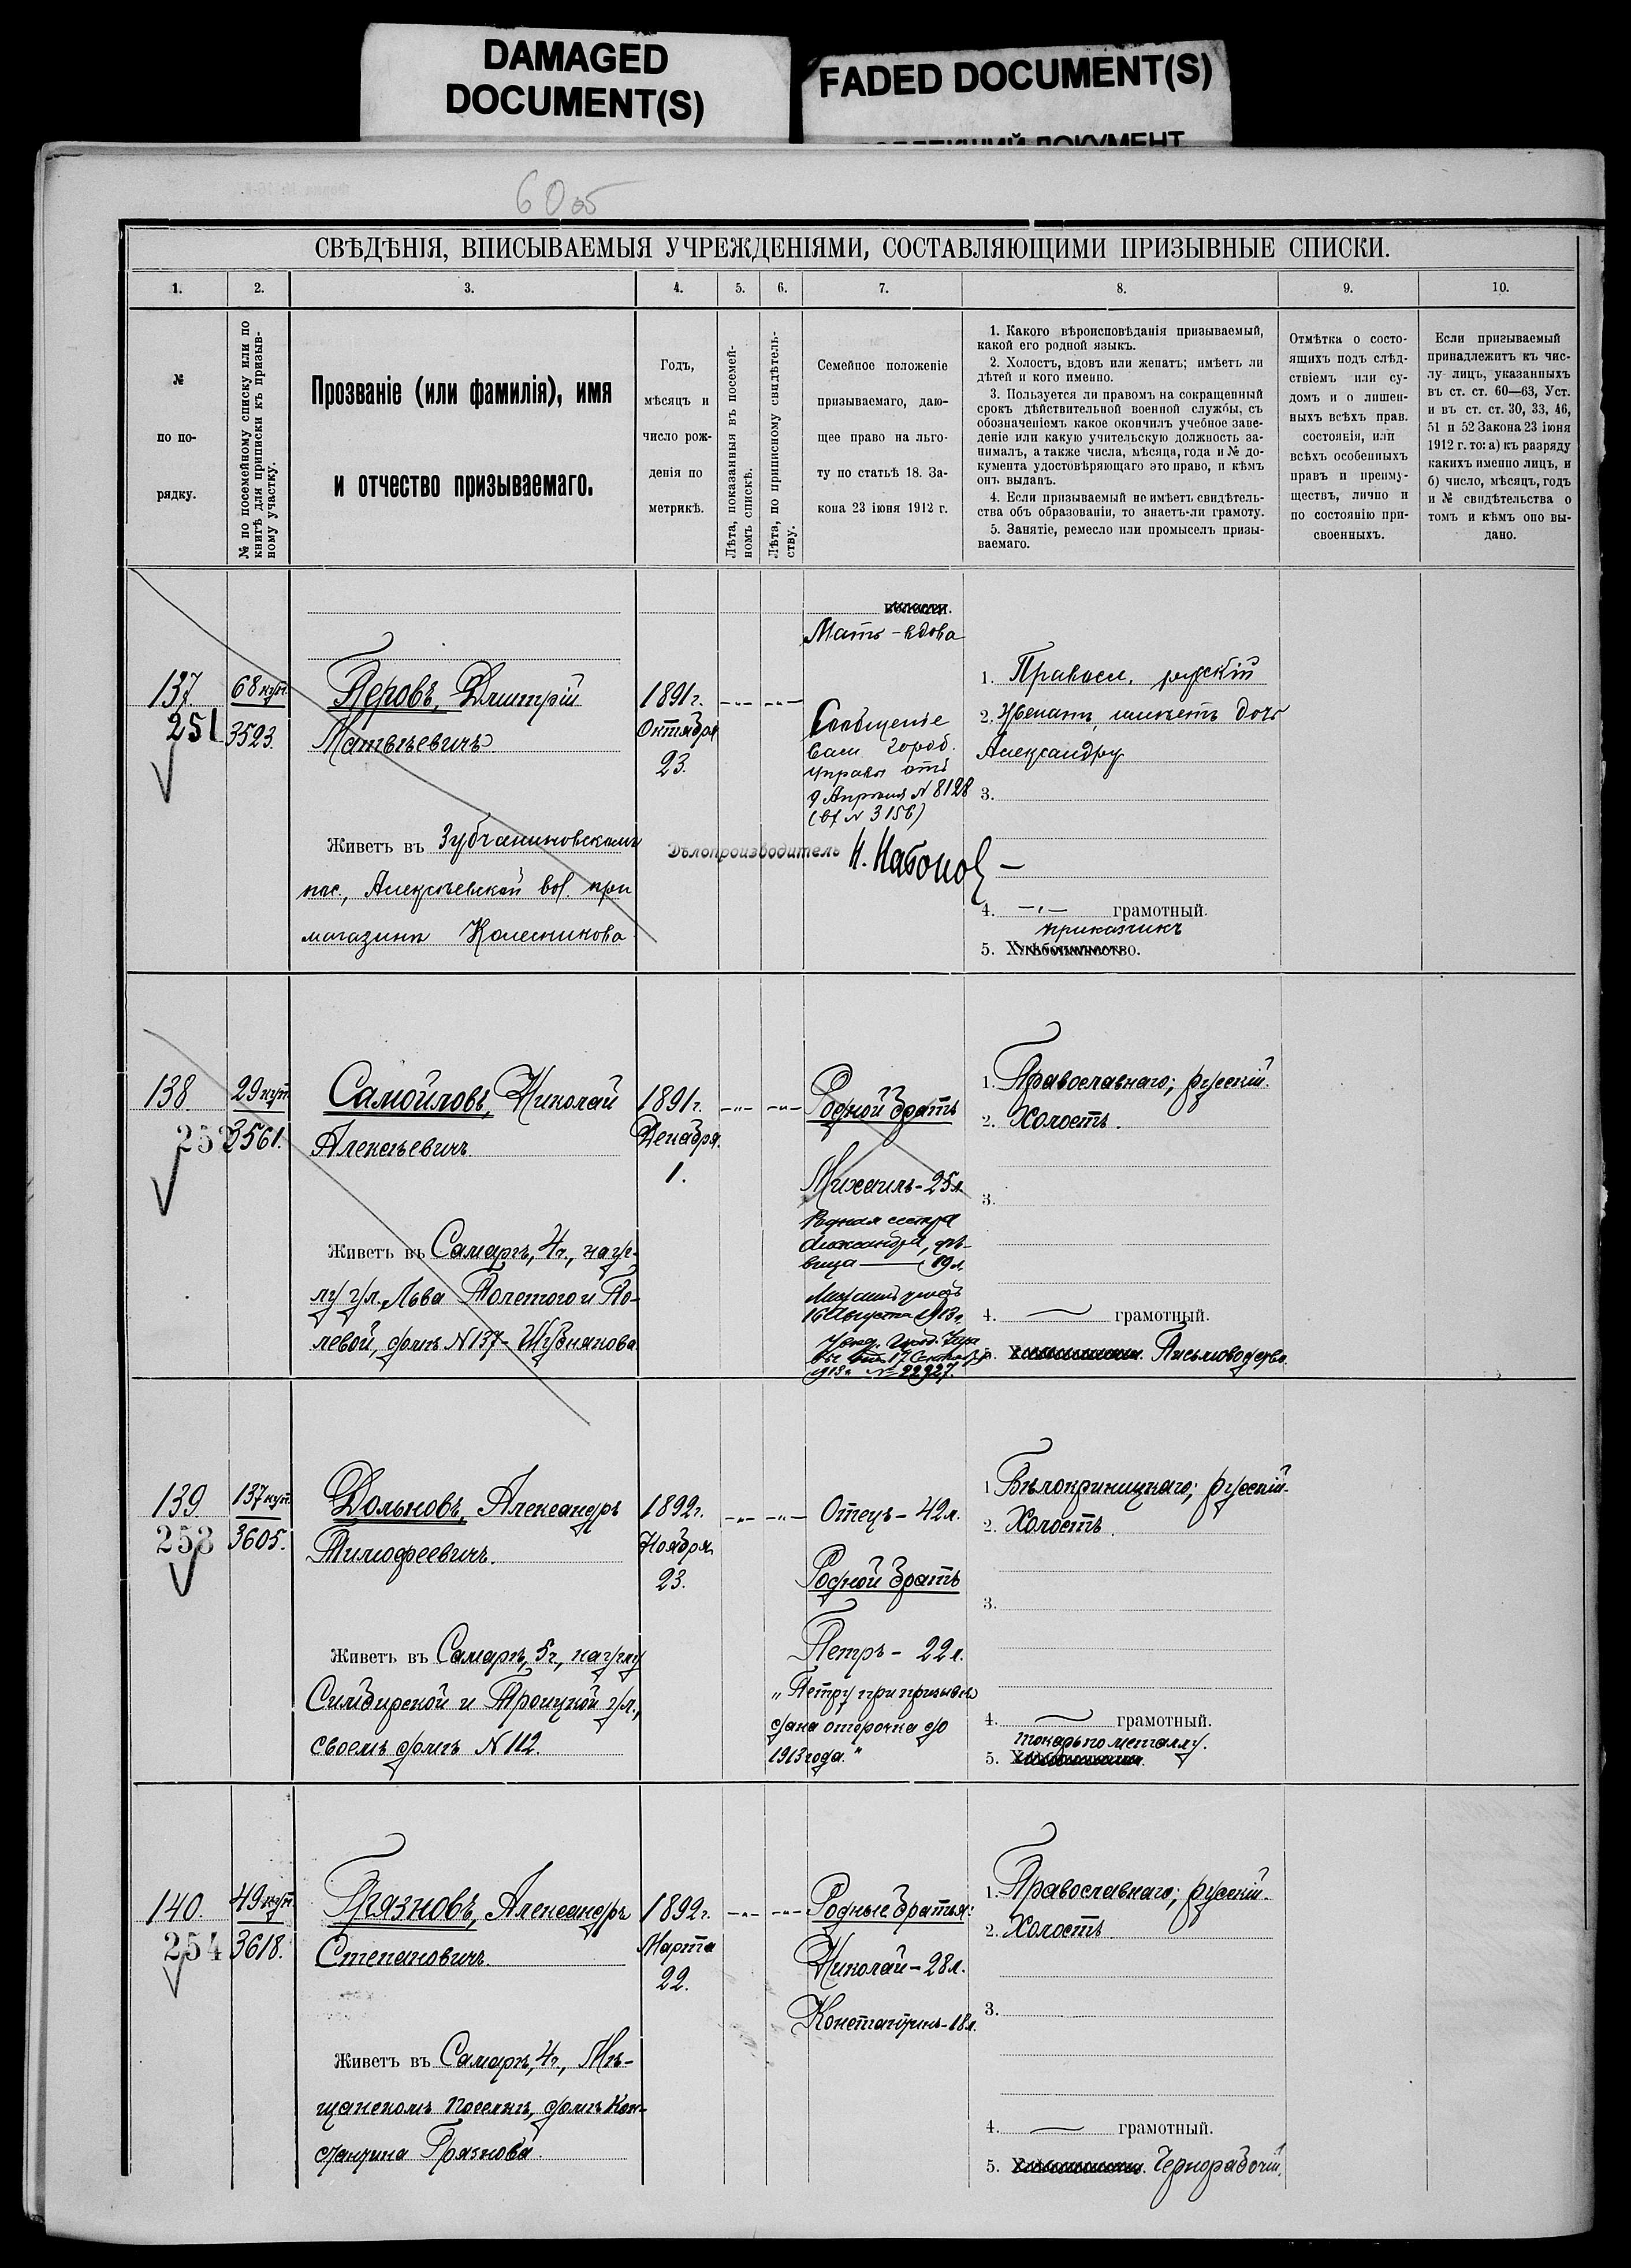 DAMAGED
DOCUMENT(S)
FADED DOCUMENT(S)
ДОКУМЕНТ
6 об
СВѢДѢНІЯ, ВПИСЫВАЕМЫЯ УЧРЕЖДЕНІЯМИ, СОСТАВЛЯЮЩИМИ ПРИЗЫВНЫЕ СПИСКИ.
1. 2. 3. 4. 5. 6. 7. 8. 9. 10.
№
по по-
рядку.
№ по посемейному списку или по
книгѣ для приписки къ призыв-
ному участку.
Прозваніе (или фамилія), имя
и отчество призываемаго.
Годъ,
мѣсяцъ и
число рож-
денія по
метрикѣ.
Лѣта, показанныя въ посемей-
номъ спискѣ.
Лѣта, по приписному свидѣтель-
ству.
Семейное положеніе
призываемаго, даю-
щее право на льго-
ту по статьѣ 18. За-
кона 23 іюня 1912 г.
1. Какого вѣроисповѣданія призываемый,
какой его родной языкъ.
2. Холостъ, вдовъ или женатъ; имѣетъ ли
дѣтей и кого именно.
3. Пользуется ли правомъ на сокращенный
срокъ дѣйствительной военной службы, съ
обозначеніемъ какое окончилъ учебное заве-
деніе или какую учительскую должность за-
нималъ, а также числа, мѣсяца, года и № до-
кумента удостовѣряющаго это право, и кѣмъ
онъ выданъ.
4. Если призываемый не имѣетъ свидѣтель-
ства объ образованіи, то знаетъ-ли грамоту.
5. Занятіе, ремесло или промыселъ призы-
ваемаго.
Отмѣтка о состо-
ящихъ подъ слѣд-
ствіемъ или су-
домъ и о лишен-
ныхъ всѣхъ прав.
состоянія, или
всѣхъ особенныхъ
правъ и преиму-
ществъ, лично и
по состоянію при-
своенныхъ.
Если призываемый
принадлежитъ къ чис-
лу лицъ, указанныхъ
въ ст. ст. 60—63, Уст.
и въ ст. ст. 30, 33, 46,
51 и 52 Закона 23 іюня
1912 г. то: а) къ разряду
какихъ именно лицъ, и
б) число, мѣсяцъ, годъ
и № свидѣтельства о
томъ и кѣмъ оно вы-
дано.
137
251
68 куп.
3523.
Перовъ, Дмитрій
Матвѣевичъ
Живетъ въ Зубчаниновскомъ
пос., Алексѣевской вол. при
магазинѣ Колесникова
1891 г.
Октября
23.
Мать - вдова
Сообщеніе
Сам город.
управы отъ
9 Апрѣля № 8128
(вх № 3156)
Дѣлопроизводитель
1. Правосл. русскій
2. Женатъ, имѣетъ дочь
Александру
3.
4. —"— грамотный.
приказчикъ
5. Хлѣбопашество.
138
252
29 куп.
3561.
Самойловъ, Николай
Алексѣевичъ
Живетъ въ Самарѣ, 4ч., на уг-
лу ул. Льва Толстого и По-
левой, домъ № 137 - Шубнякова
1891 г.
Декабря
1.
Родной братъ
Михаилъ - 25 л.
Родная сестра
Александра, дѣ-
вица — 19 л.
Михаилъ умеръ
16 Августа 1913 г.
17 Сентября
1913 г. № 22927.
1. Православнаго; русскій.
2. Холостъ.
3.
4. — грамотный.
5. Письмоводство.
139
253
137 куп.
3605.
Дольновъ, Александръ
Тимофеевичъ.
Живетъ въ Самарѣ, 5ч., на углу
Симбирской и Троицкой ул.,
своемъ домѣ № 112.
1892 г.
Ноября
23.
Отецъ - 42 л.
Родной братъ
Петръ - 22 л.
„Петру при призывѣ
дана отсрочка до
1913 года."
1. Бѣлокриницкаго; русскій.
2. Холостъ.
3.
4. — грамотный.
токарь по металлу.
5.
140.
254
49 куп.
3618.
Грязновъ, Александръ
Степановичъ.
Живетъ въ Самарѣ, 4ч., Мѣ-
щанскомъ поселкѣ, домъ Кон-
стантина Грязнова.
1892 г.
Марта
22.
Родные братья:
Николай - 28 л.
Константинъ - 18 л.
1. Православнаго; русскій.
2. Холостъ.
3.
4. — грамотный.
5. Чернорабочій.